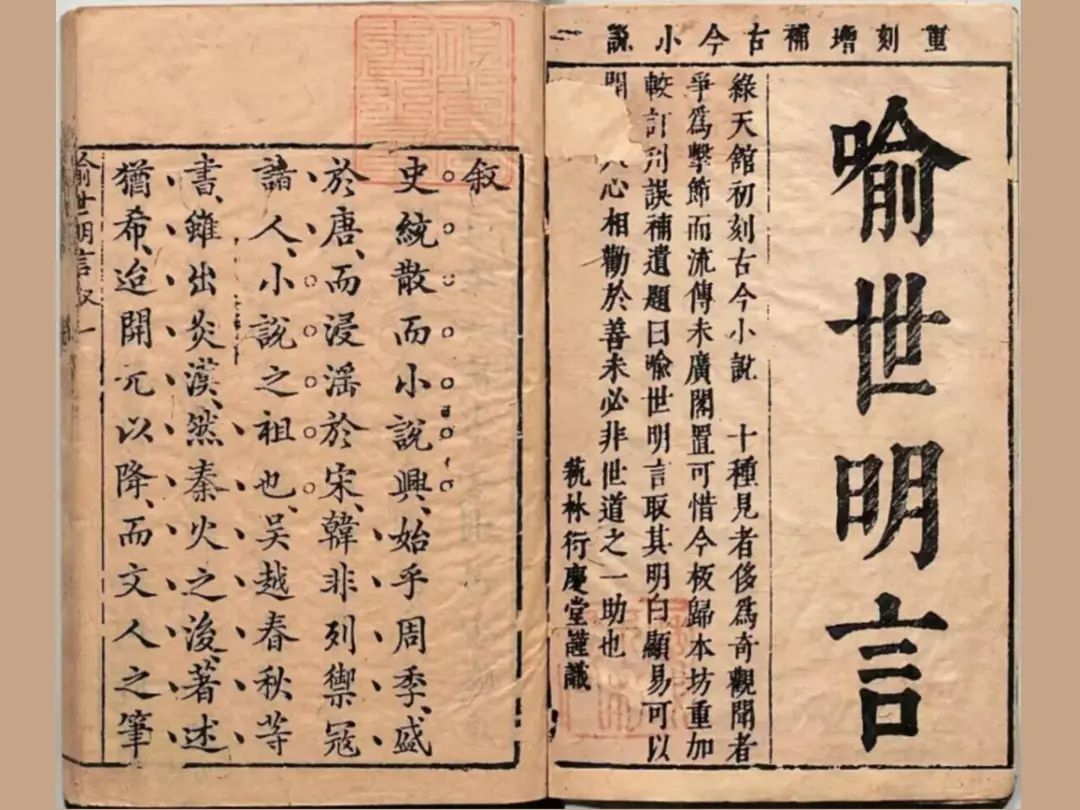 重刻增補古今小說
喻世明言
綠天館初刻古今小說 十種見者侈爲奇觀聞者
爭爲擊節而流傳未廣閣置可惜今板歸本坊重加
較訂刋誤補遺題曰喻世明言取其明白顯易可以
人心相勸於善未必非世道之一助也
萟林衍慶堂謹識
叙
史統散而小說興、始乎周季、盛
於唐、而浸滛於宋、韓非列禦冦
諸人、小說之祖也、吳越春秋等
書、雖出炎漢、然秦火之後、著述
猶希、迨開元以降、而文人之筆
喻世明言叙 一